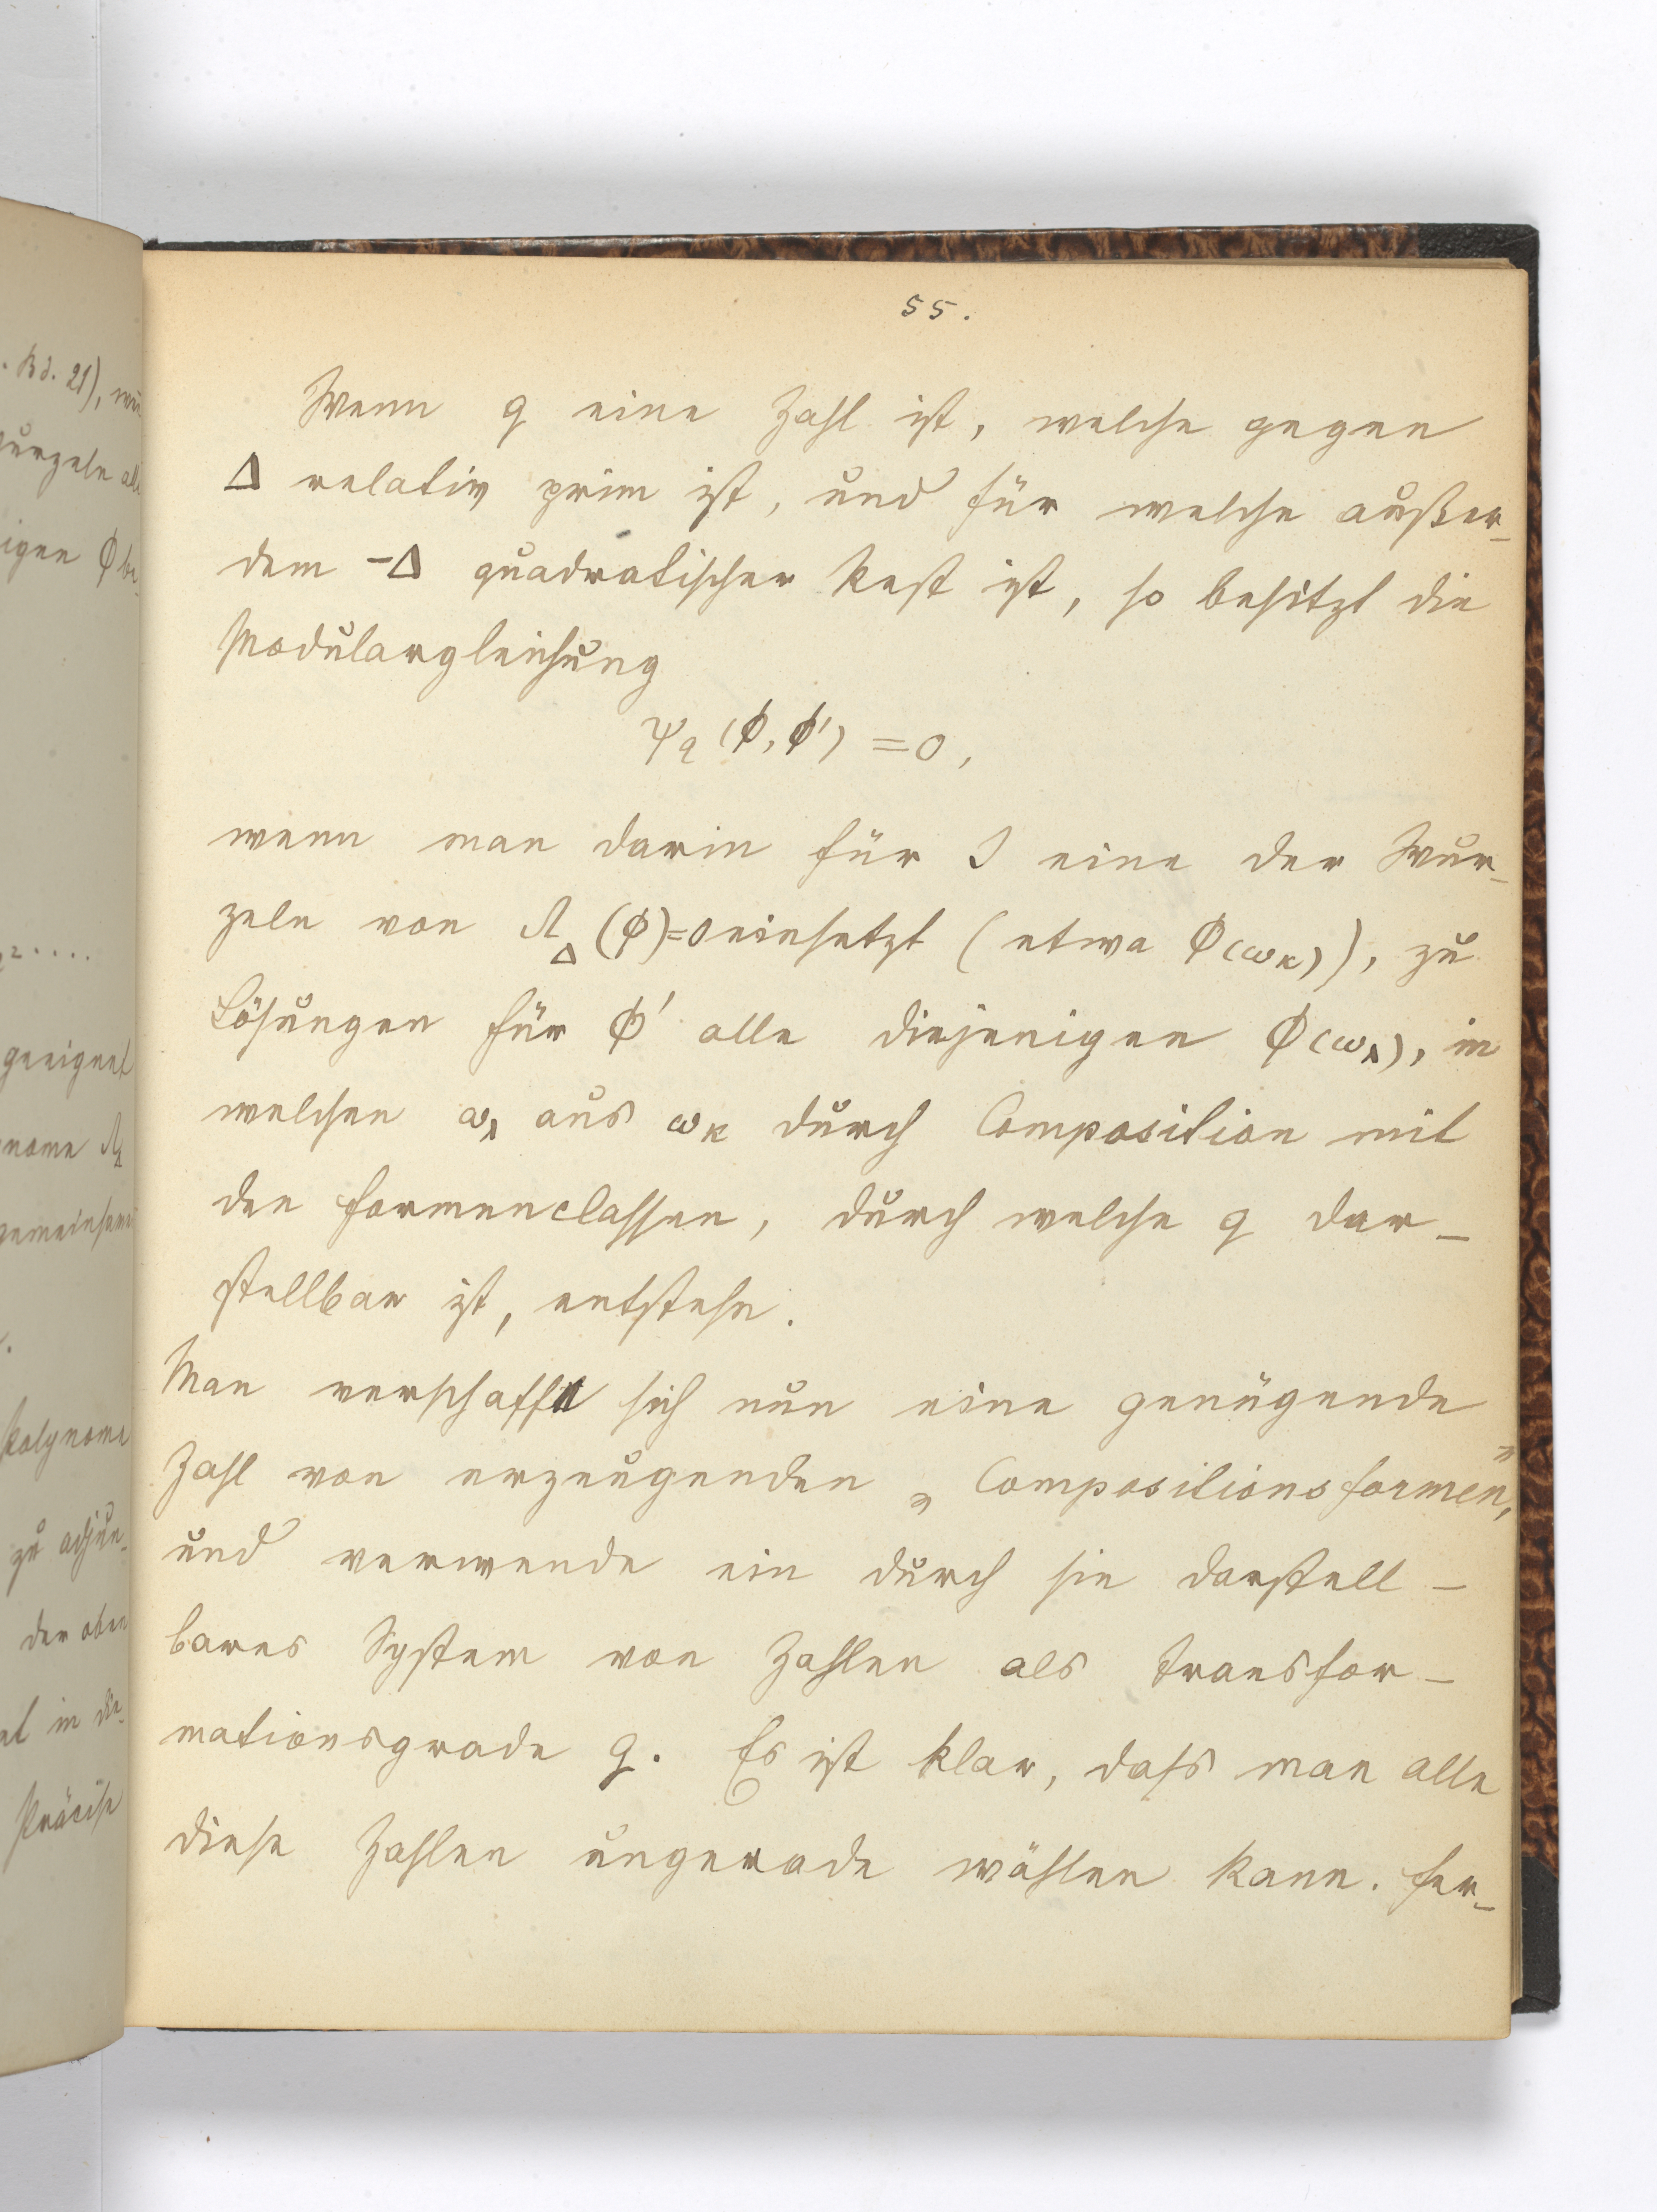 55.
Wenn q eine Zahl ist, welche gegen
Δ relativ prim ist, und für welche außer-
dem -Δ quadratischer Rest ist, so besitzt die
Modulargleichung
Ψq (ϕ, ϕ') = 0,
wenn man darin für J eine der Wur-
zeln von Λ_Δ (ϕ)=0 einsetzt (etwa ϕ(ωκ)), zu
Lösungen für ϕ' alle diejenigen ϕ(ωλ), in
welchen ωλ aus ωκ durch Composition mit
den Formenclassen, durch welche q dar-
stellbar ist, entstehn.
Man verschaffe sich nun eine genügende
Zahl von erzeugenden „Compositionsformen",
und verwende ein durch sie darstell-
bares System von Zahlen als Transfor-
mationsgrade q. Es ist klar, dass man alle
diese Zahlen ungerade wählen kann. Fer-
. Bd. 21),
wurzeln
igen ϕ be-
2....
geeignet
Polynome
zu adjun-
der oben
in die-
Präcise